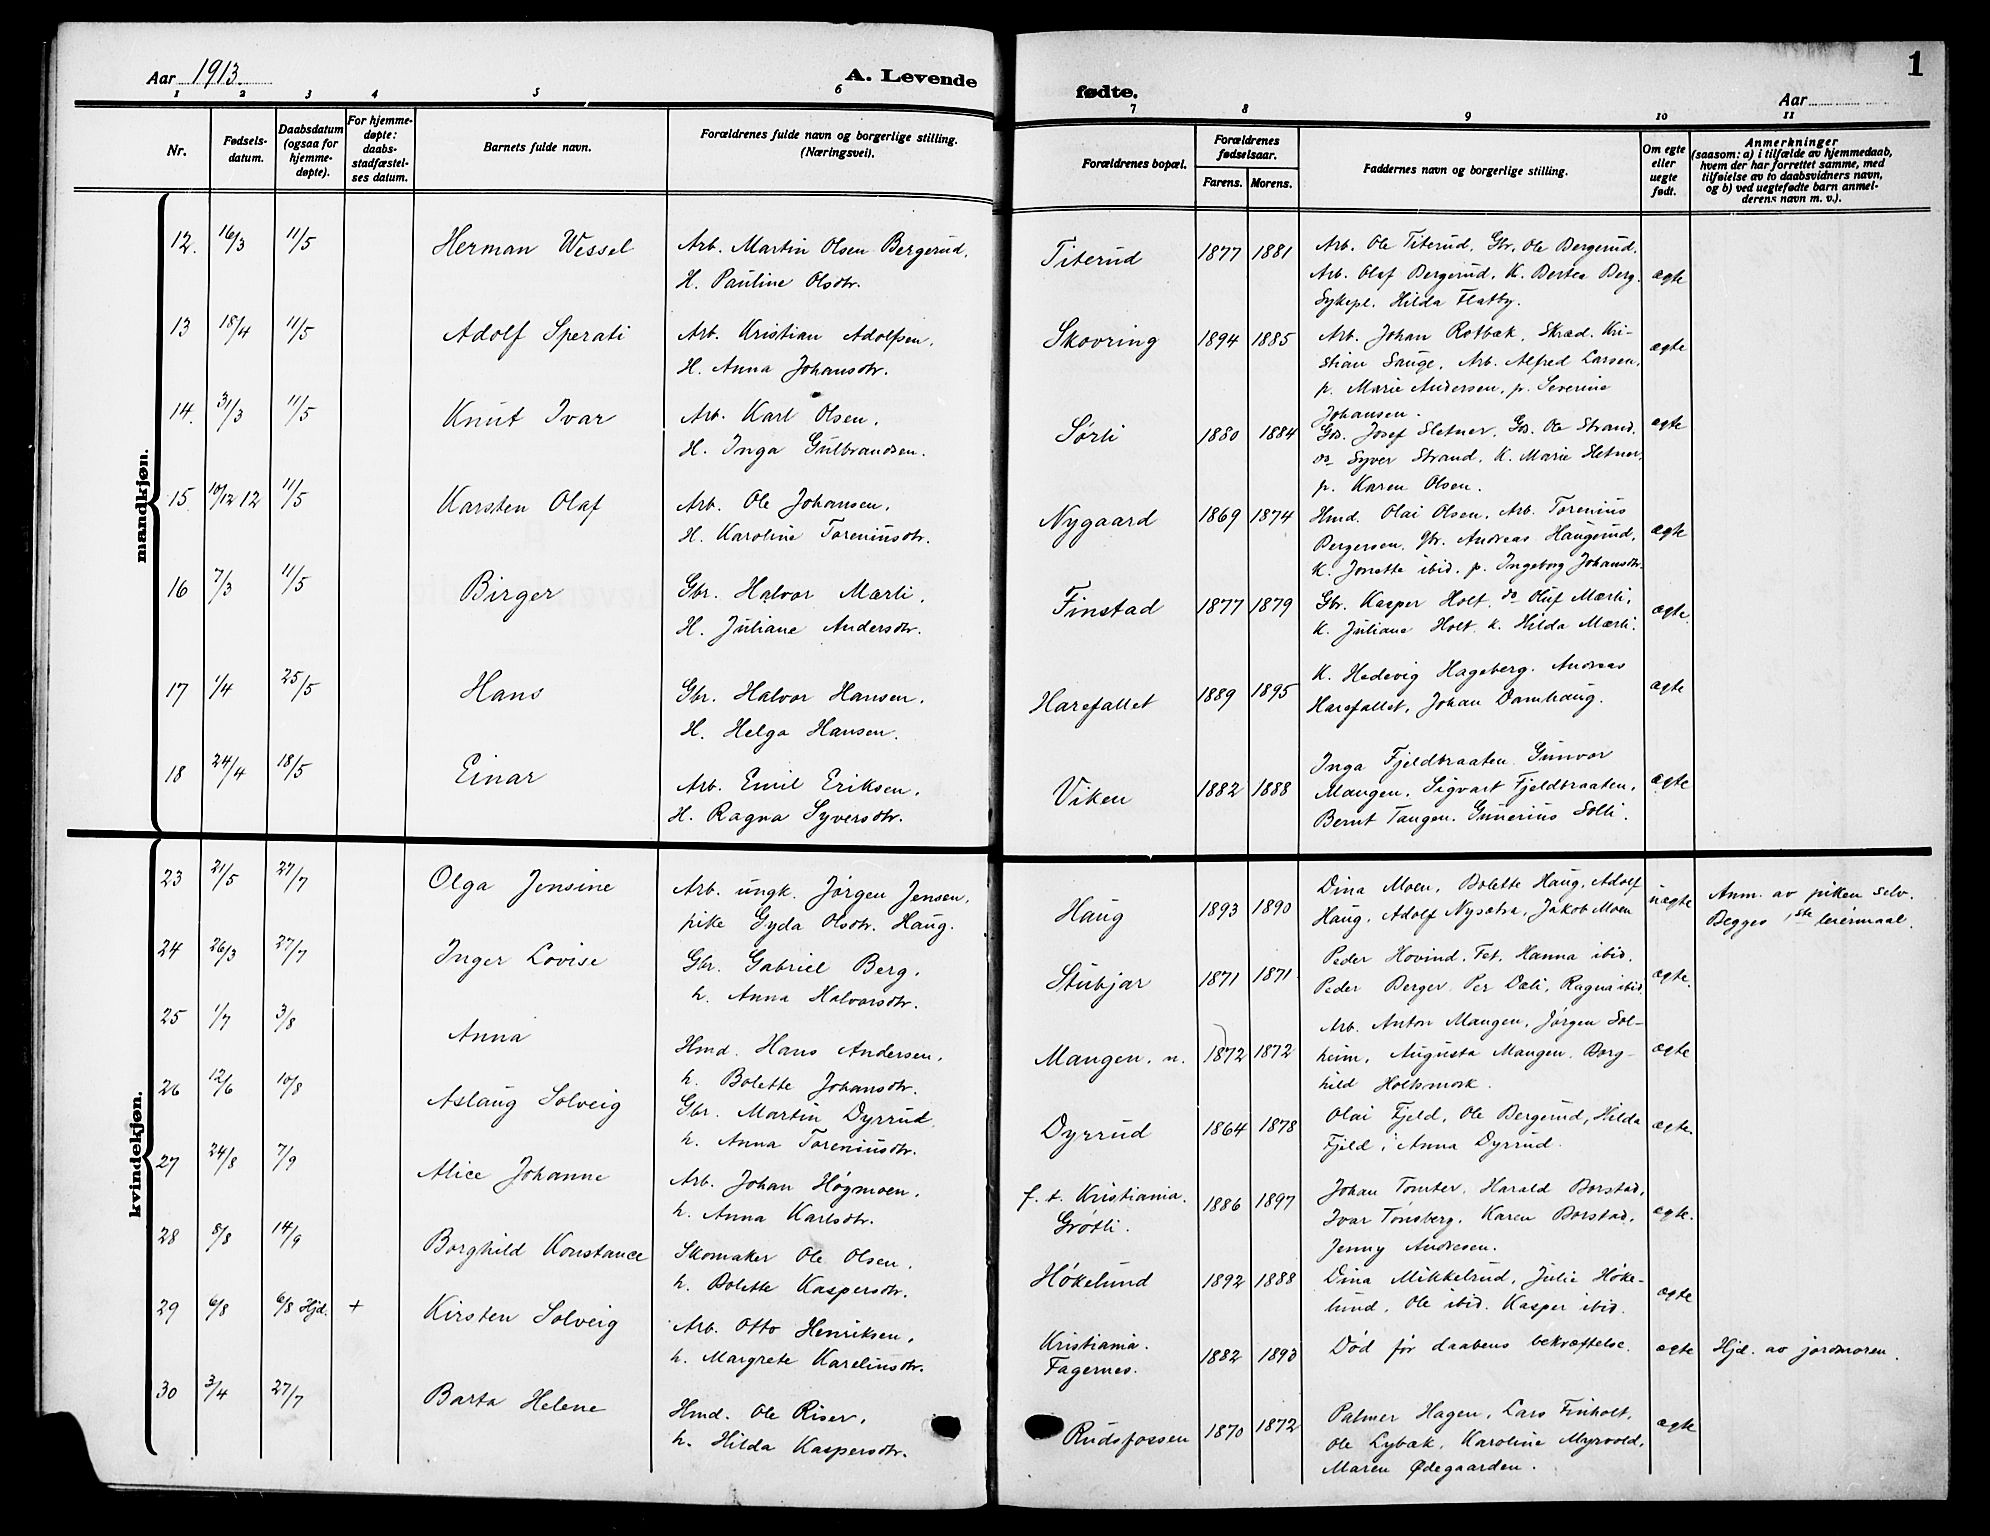 Aar 1913.
A. Levende
fødte.
Aar
1
1 2 3 4 5 6
7 8 9 10 11
Nr.
Fødsels-
datum.
Daabsdatum
(ogsaa for
hjemme-
døpte).
For hjemme-
døpte:
daabs-
stadfæstel-
ses datum.
Barnets fulde navn.
Forældrenes fulde navn og borgerlige stilling.
(Næringsvei).
Forældrenes bopæl.
Forældrenes
fødselsaar.
Farens. Morens.
Faddernes navn og borgerlige stilling.
Om egte
eller
uegte
født.
Anmerkninger
(saasom: a) i tilfælde av hjemmedaab,
hvem der har forrettet samme, med
tilføielse av to daabsvidners navn,
og b) ved uegtefødte barn anmel-
derens navn m. v.).
mandkjøn.
12. 16/3 11/5 Herman Wessel
Arb. Martin Olsen Bergerud.
H. Pauline Olsdtr.
Titerud 1877 1881
Arb. Ole Titerud, Gbr. Ole Bergerud.
Arb. Olaf Bergerud. K. Bertea Berg.
Sykepl. Hilda Flatby.
ægte
13 18/4 11/5 Adolf Sperati
Arb. Kristian Adolfsen.
H. Anna Johansdtr.
Skovring 1894 1885
Arb. Johan Rotbæk, Skræd. Kri-
stian Sauge, Arb. Alfred Larsen,
p. Marie Andersen, p. Severine
Johansen.
ægte
14. 31/3 11/5 Knut Ivar
Arb. Karl Olsen.
H. Inga Gulbrandsen.
Sørli 1880 1884
Gb. Josef Sletner, Gb. Ole Strand.
do Syver Strand, K. Marie Sletner.
p. Karen Olsen.
ægte
15 10/12 12 11/5 Karsten Olaf
Arb. Ole Johansen.
H. Karoline Toreniusdtr.
Nygaard 1869 1874
Hmd. Olai Olsen, Arb. Torenius
Bergersen, Gbr. Andreas Haugerud,
K. Jonette ibid. p. Ingeborg Johansdtr.
ægte
16 7/3 11/5 Birger
Gbr. Halvor Mærli.
H. Juliane Andersdtr.
Finstad 1877 1879
Gbr. Kasper Holt, do Oluf Mærli,
K. Juliane Holt. K. Hilda Mærli.
ægte.
17 1/4 25/5 Hans
Gbr. Halvor Hansen.
H. Helga Hansen.
Harefallet 1889 1895
K. Hedevig Hageberg. Andreas
Harefallet, Johan Damhaug.
ægte
18 24/4 18/5 Einar
Arb. Emil Eriksen.
H. Ragna Syversdtr.
Viken 1882 1888
Inga Fjeldbraaten. Gunvor
Mangen, Sigvart Fjeldbraaten,
Bernt Tangen. Gunerius Solli.
ægte
kvindekjøn.
23 21/5 27/7 Olga Jensine
Arb. ungk. Jørgen Jensen,
pike Gyda Olsdtr. Haug.
Haug 1893 1890
Dina Moen, Bolette Haug, Adolf
Haug, Adolf Nysætra, Jakob Moen
uægte
Anm. av piken selv.
Begges 1ste leiermaal.
24 26/3 27/7 Inger Lovise
Gbr. Gabriel Berg.
h. Anna Halvorsdtr.
Stubjar 1871 1871
Peder Hovind. Fet. Hanna ibid.
Peder Berger Per Dæli, Ragna ibid.
ægte.
25 1/7 3/8 Anna
Hmd. Hans Andersen.
h. Bolette Johansdtr.
Mangen. n. 1872 1872
Arb. Anton Mangen, Jørgen Sol-
heim, Augusta Mangen. Borg-
hild Holtsmork.
ægte
26 12/6 10/8 Aslaug Solveig
Gbr. Martin Dyrrud.
h. Anna Toreniusdtr.
Dyrrud 1864 1878
Olai Fjeld, Ole Bergerud, Hilda
Fjeld, Anna Dyrrud.
ægte.
27 24/8 7/9 Alice Johanne
Arb. Johan Høgmoen.
h. Anna Karlsdtr.
f. t. Kristiania.
Grøtli. 1886 1897
Johan Tomter. Harald Borstad,
Ivar Tønsberg. Karen Borstad.
Jenny Andresen.
ægte.
28 8/8 14/9 Borghild Konstance
Skomaker Ole Olsen.
h. Bolette Kaspersdtr.
Høkelund 1892 1888
Dina Mikkelrud, Julie Høke-
lund, Ole ibid. Kasper ibid.
ægte
29 6/8 6/8 Hjd. + Kirsten Solveig
Arb. Otto Henriksen.
h. Margrete Kareliusdtr.
Kristiania.
Fagernes. 1882 1893
Død før daabens bekræftelse.
ægte
Hjd. av jordmoren.
30 3/4 27/7 Barta Helene
Hmd. Ole Riser.
h. Hilda Kaspersdtr.
Rudsfossen 1870 1872
Palmer Hagen, Lars Finholt,
Ole Lybæk, Karoline Myrvold,
Maren Ødegaarden.
ægte